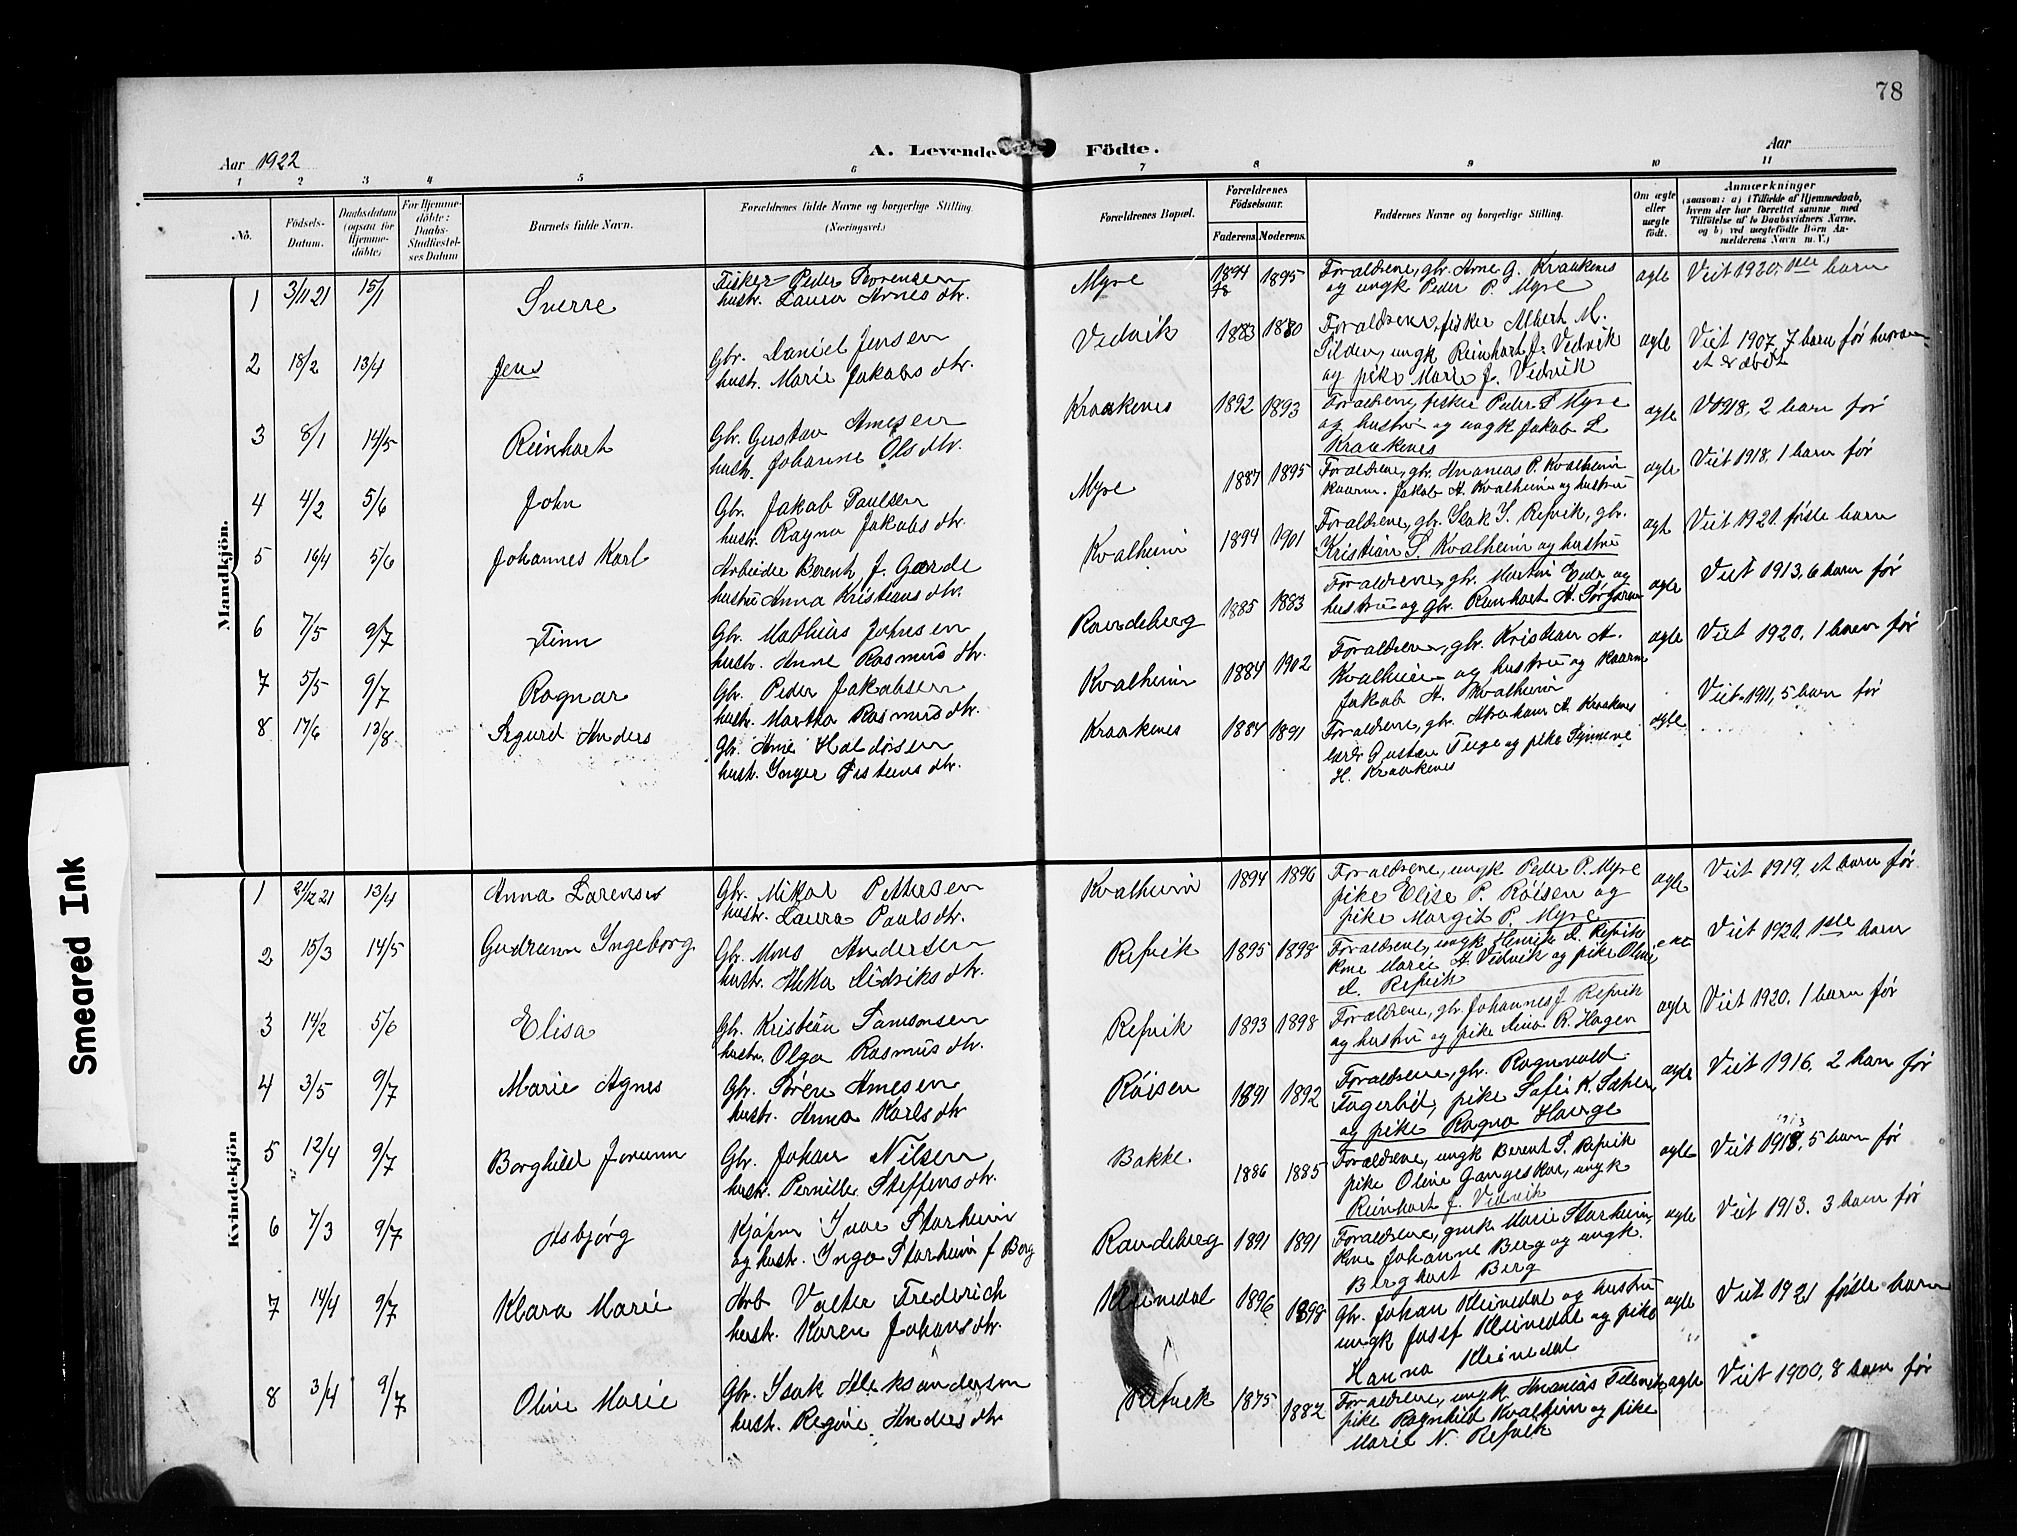 78
Aar 1922
A. Levende Födte.
Aar
1 2 3 4 5 6 7 8 9 10 11
No.
Födsels-Datum.
Daabsdatum (ogsaa for Hjemmedöbte)
For Hjemmedöbte: Daabs-Stadfæstelses Datum
Barnets fulde Navn.
Forældrenes fulde Navne og borgerlige Stilling.
(Næringsvei.)
Forældrenes Bopæl.
Forældrenes Födselsaar.
Faderens. Moderens.
Faddernes Navne og borgerlige Stilling.
Om ægte eller uægte födt.
Anmærkninger
(saasom: a) i Tilfælde af Hjemmedaab,
hvem der har forrettet samme med
Tilföielse af to Daabsvidners Navne,
og b) ved uægtefödte Börn Anmelderens Navn m. V.)
Mandkjön.
1 3/11 21 15/1 Sverre
Fisker Peder Sorensen
hustr. Laura Arnes dtr.
Myre 1894 1895
Forældrene, gbr. Arne G. Kraakenes
og ungk Peder P. Myre
ægte Viet 1920, 1ste barn
2 18/2 13/4 Jens
Gbr. Daniel Jensen
hustr. Marie Jakobs dtr.
Vedvik 1883 1880
Forældrene, fisker Albert M.
Tilden, ungk Reinhart J. Vedvik
og pike Marie J. Vedvik
ægte Viet 1907, 7 barn før hvorav
et er dødt
3 8/1 14/5 Reinhart
Gbr. Gustav Arnesen
hustr. Johanne Ols dtr.
Kraakenes 1892 1893
Forældrene, fisker Peder S Myre
og hustru og ungk Jakob L
Kraakenes
ægte V 1918, 2 barn før
4 4/2 5/6 John
Gbr. Jakob Paulsen
hustr. Ragna Jakobs dtr.
Myre 1887 1895
Forældrene, gbr. Ananias P. Kvalheim
kaarm. Jakob A. Kvalheim og hustru
ægte Viet 1918. 1 barn før
5 16/4 5/6 Johannes Karl
Arbeider Berent J. Gærde
hustru Anna Kristians dtr.
Kvalheim 1894 1901
Forældrene, gbr. Isak S. Refvik, gbr.
Kristian S. Kvalheim og hustru
ægt Viet 1921. første barn
6 7/5 9/7 Finn
Gbr. Mathias Johnsen
hustr. Anne Rasmus dtr.
Raudeberg 1885 1883
Forældrene, gbr. Martin Eide og
hustru og gbr. Reinhart A.
ægte Viet 1913, 6 barn før
7 5/5 9/7 Ragnar
Gbr. Peder Jakobsen
hustr. Martha Rasmus dtr.
Kvalheim 1884 1902
Forældrene, gbr. Kristian A.
Kvalheim og hustru og kaarm
Jakob A. Kvalheim
ægte Viet 1920. 1 barn før
8 17/6 13/8 Sigurd Anders
Gbr. Arne Haldorsen
hustr. Inger Øistens dtr.
Kraakenes 1884 1891
Forældrene, gbr. Abraham A. Kraakenes
lærer Gustav Tuge og pike Synneve
H. Kraakenes
ægte Viet 1911, 5 barn før
Kvindekjön
1 21/12 21 13/4 Anna Lorense
Gbr. Mikal Pettersen
hustr. Laura Pauls dtr.
Kvalheim 1894 1896
Forældrene, ungk Peder P. Myre
pike Elise P. Röisen og
pike Margit P. Myre
ægte Viet 1919, et barn før
2 15/3 14/5 Gudrunn Ingeborg
Gbr. Mons Andersen
hustr. Didriks dtr.
Refvik 1895 1898
Forældrene, ungk Henrik D. Refvik
kone Marie A. Vedvik og pike Oline
D. Refvik
Viet 1921. 1ste barn
3 14/2 5/6 Elisa
Gbr Kristian Samsonsen
hustr. Olga Rasmus dtr.
Refvik 1893 1898
Forældrene, gbr Johannes J Refvik
og hustru og pike Aina R. Hagen
ægte Viet 1920. 1 barn før
4 3/5 9/7 Marie Agnes
Gbr. Sören Arnesen
hustr. Anna Karls dtr
Röisen 1891 1892
Forældrene, gbr. Ragnvald
Fagerlid, pike Sofie K. Sæter
og pike Ragna Hauge
ægte Viet 1916. 2 barn før
5 12/4 9/7 Borghild Jorunn
Gbr. Johan Nilsen
hustr. Pernille Steffens dtr.
Bakke 1886 1885
Forældrene, ungk Berent S. Refvik
pike Oline Gangeskar, ungk
Reinhart J. Vedvik
ægte Viet 1913, 5 barn før
1913
6 7/3 9/7 Asbjørg
Kjøpm Ivar Starheim
og hustr. Inga Starheim f Berg
Raudeberg 1891 1891
Forældrene, gmk Marie Starheim,
kone Johanne Berg og ungk.
Berghart Berg
ægte Viet 1913. 3 barn før
7 14/4 9/7 Klara Marie
Arb Valter Frederich
hustr. Karen Johans dtr.
Kleinedal 1896 1898
Gbr. Johan Kleinedal og hustru
ungk Josef Kleinedal og pike
Hanna Kleinedal
ægte Viet 1921 første barn
8 3/4 9/7 Oline Marie
Gbr. Isak Aleksandersen
hustr. Regine Anders dtr
Refvik 1875 1882
Forældrene, ungk Ananias
pike Ragnhild Kvalheim og pike
Marie N. Refvik
ægte Viet 1900, 8 barn før
Smeared Ink